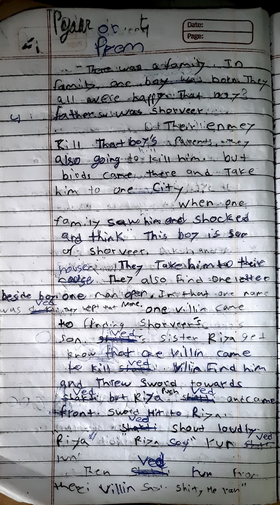 Date:
Page:
There was a family. In
family one boy was born. They
all were happy. That boy?
father was Shorveer.
Their enmey
Kill That boy's Parents. They
also going to kill him. but
birds came there and take
him to one City
When one
family saw him and shocked
and think This boy is son
of Shorveer.
house. They Take him to their
They also find one letter
beside boy. one man open. In that one name
was
one villin came
to
son. Ved sister Riya get
know that one villin came
to kill Ved. Villin find him
and Threw sword towards
but Riya Ved and came
front. Sword Hit to Riya.
Ved shout loudly
Riya" Riya say" run Ved
run"
Then Ved run from
there villin